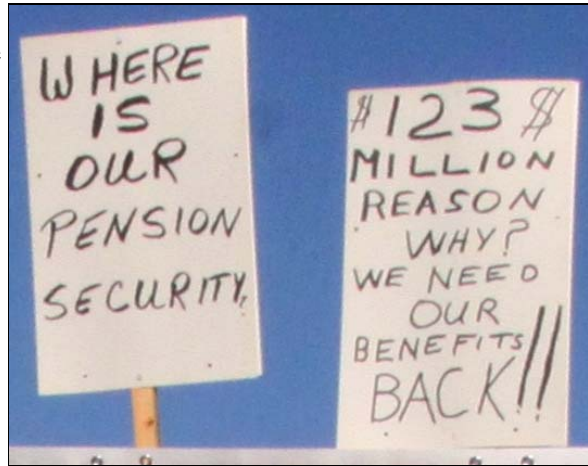 WHERE
IS
OUR
PENSION
SECURITY.
$123$
MILLION
REASON
WHY?
WE NEED
OUR
BENEFITS
BACK!!